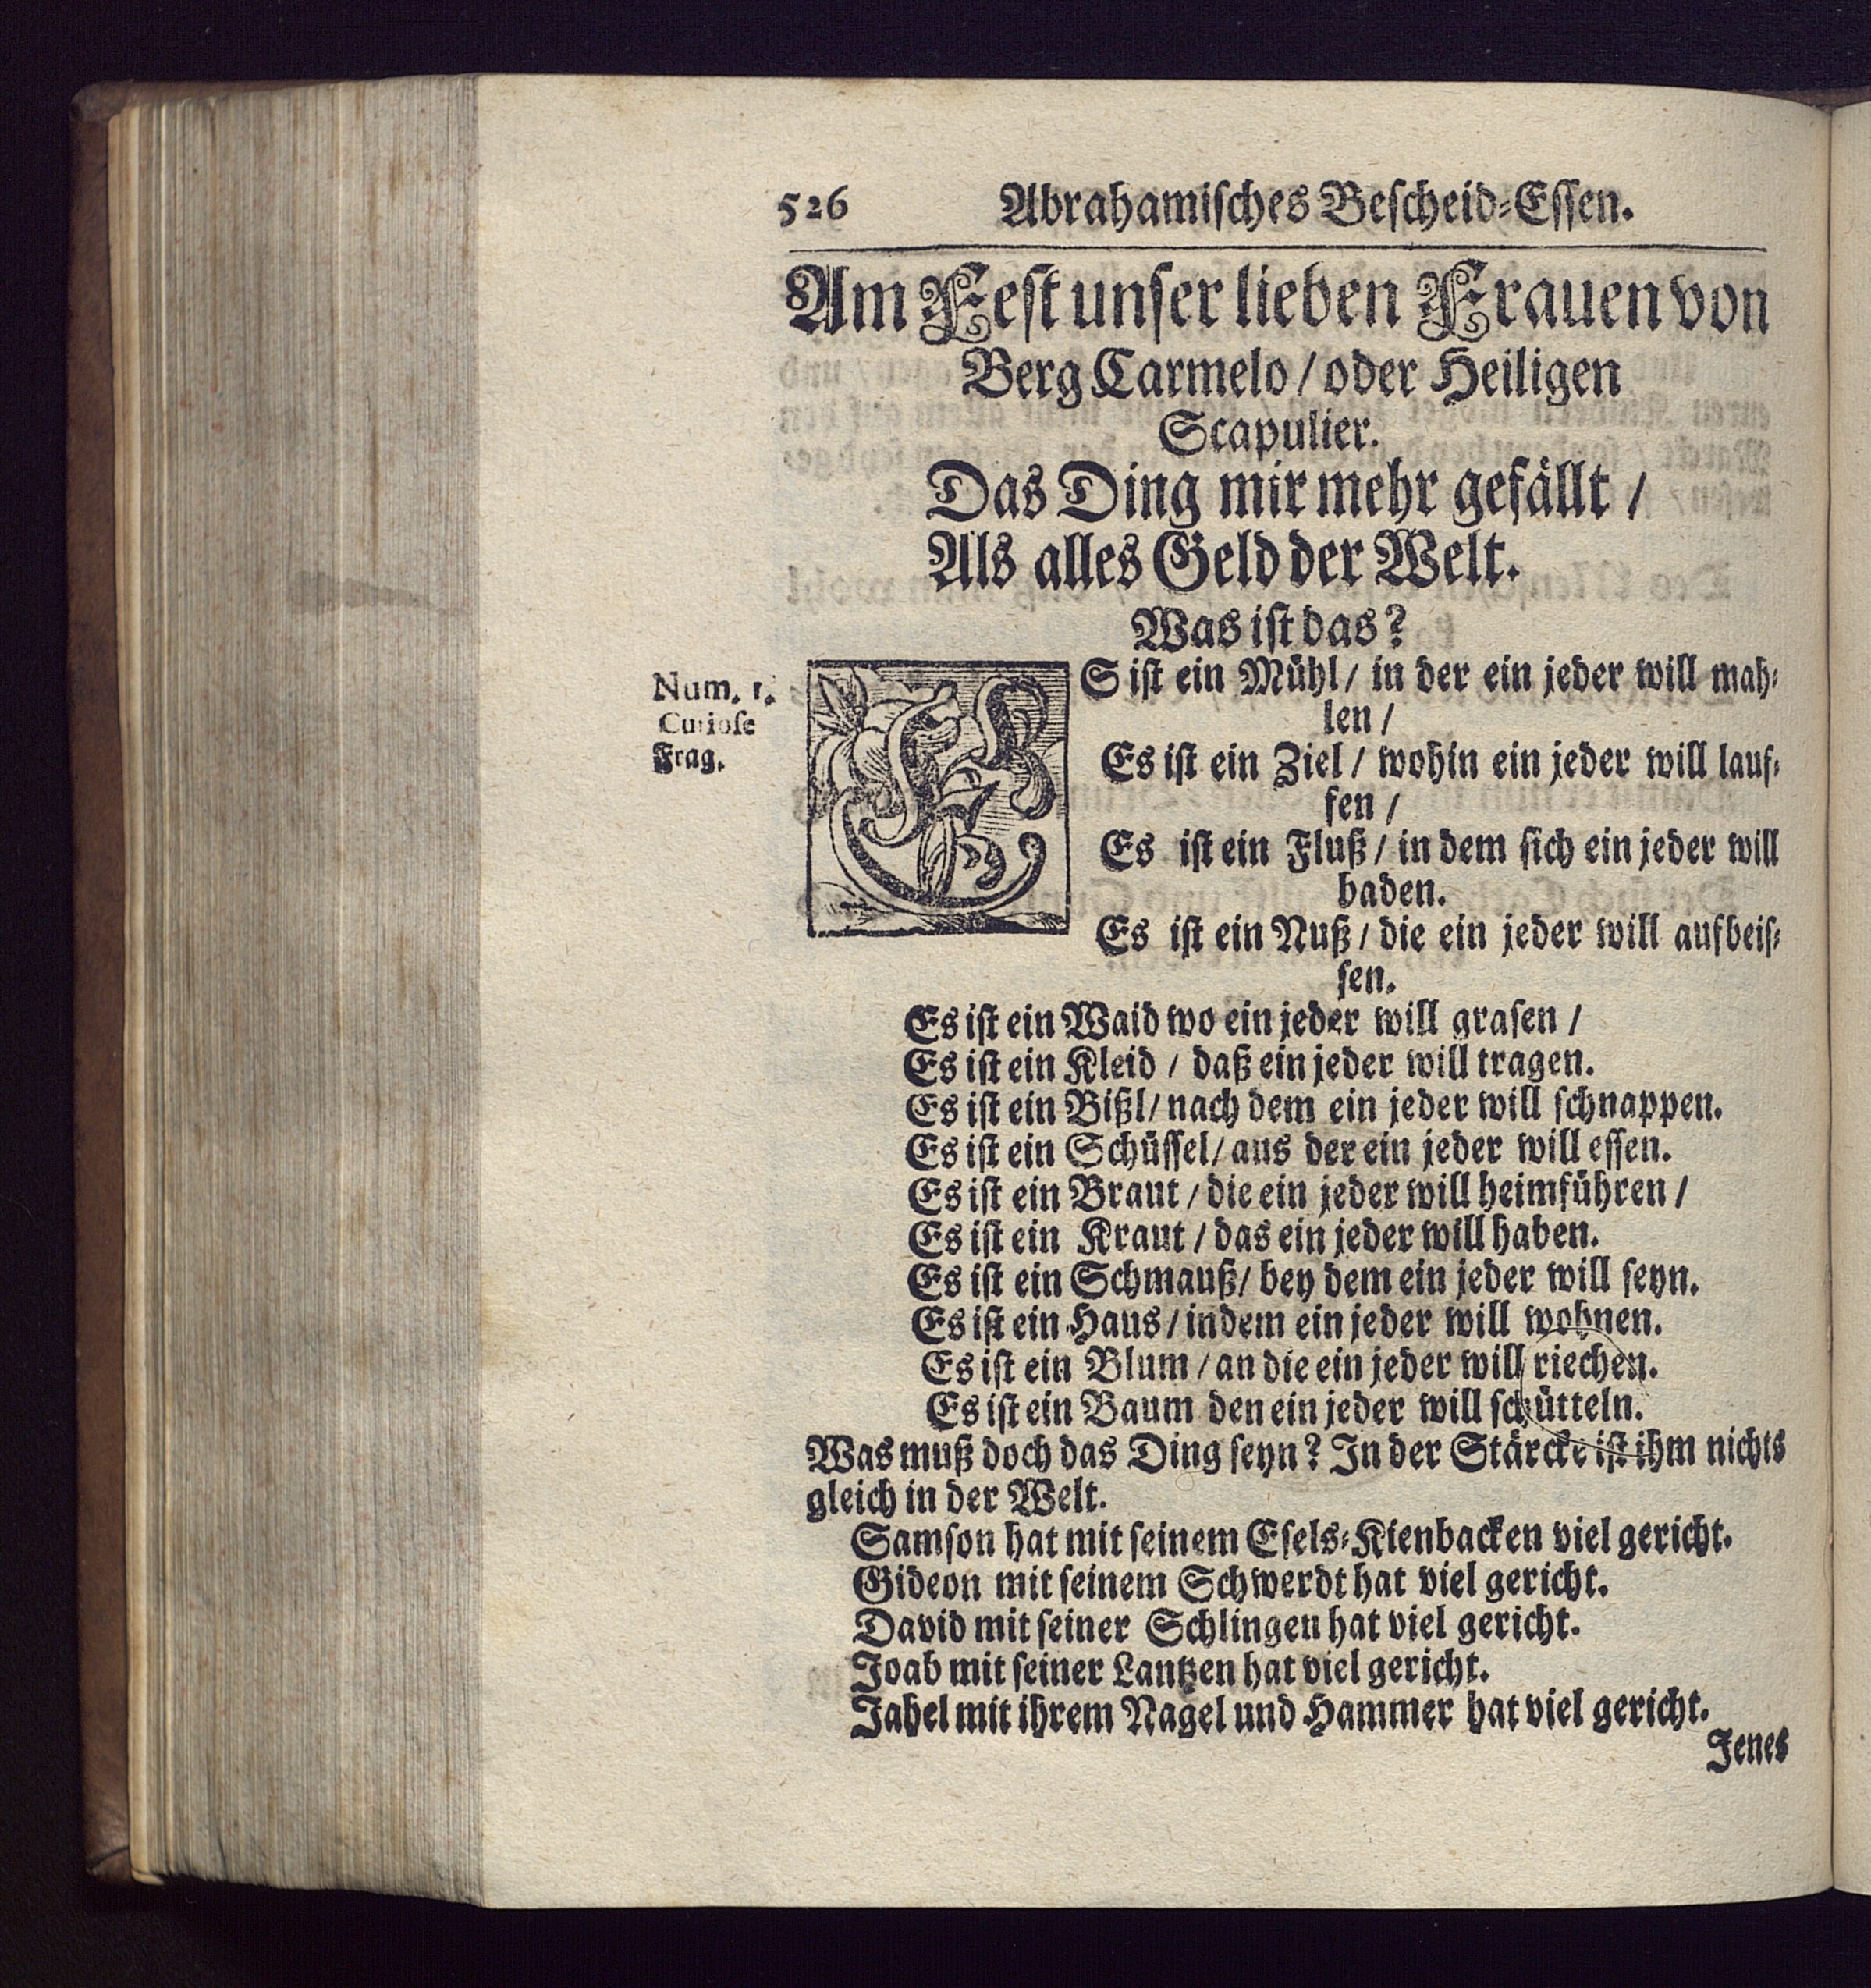 526 Abrahamisches Bescheid-Essen.
Am Fest unser lieben Frauen von
Berg Carmelo / oder Heiligen
Scapulier.
Das Ding mir mehr gefällt /
Als alles Geld der Welt.
Was ist das?
Num. 1.
Curiose
Frag.
ES ist ein Mühl / in der ein jeder will mah-
len /
Es ist ein Ziel / wohin ein jeder will lauf-
fen /
Es ist ein Fluß / in dem sich ein jeder will
baden.
Es ist ein Nuß / die ein jeder will aufbeis-
sen.
Es ist ein Waid wo ein jeder will grasen /
Es ist ein Kleid / daß ein jeder will tragen.
Es ist ein Bißl / nach dem ein jeder will schnappen.
Es ist ein Schüssel / aus der ein jeder will essen.
Es ist ein Braut / die ein jeder will heimführen /
Es ist ein Kraut / das ein jeder will haben.
Es ist ein Schmauß / bey dem ein jeder will seyn.
Es ist ein Haus / in dem ein jeder will wohnen.
Es ist ein Blum / an die ein jeder will riechen.
Es ist ein Baum den ein jeder will schütteln.
Was muß doch das Ding seyn? In der Stärcke ist ihm nichts
gleich in der Welt.
Samson hat mit seinem Esels-Kienbacken viel gericht.
Gideon mit seinem Schwerdt hat viel gericht.
David mit seiner Schlingen hat viel gericht.
Joab mit seiner Lantzen hat viel gericht.
Jahel mit ihrem Nagel und Hammer hat viel gericht.
Jenes